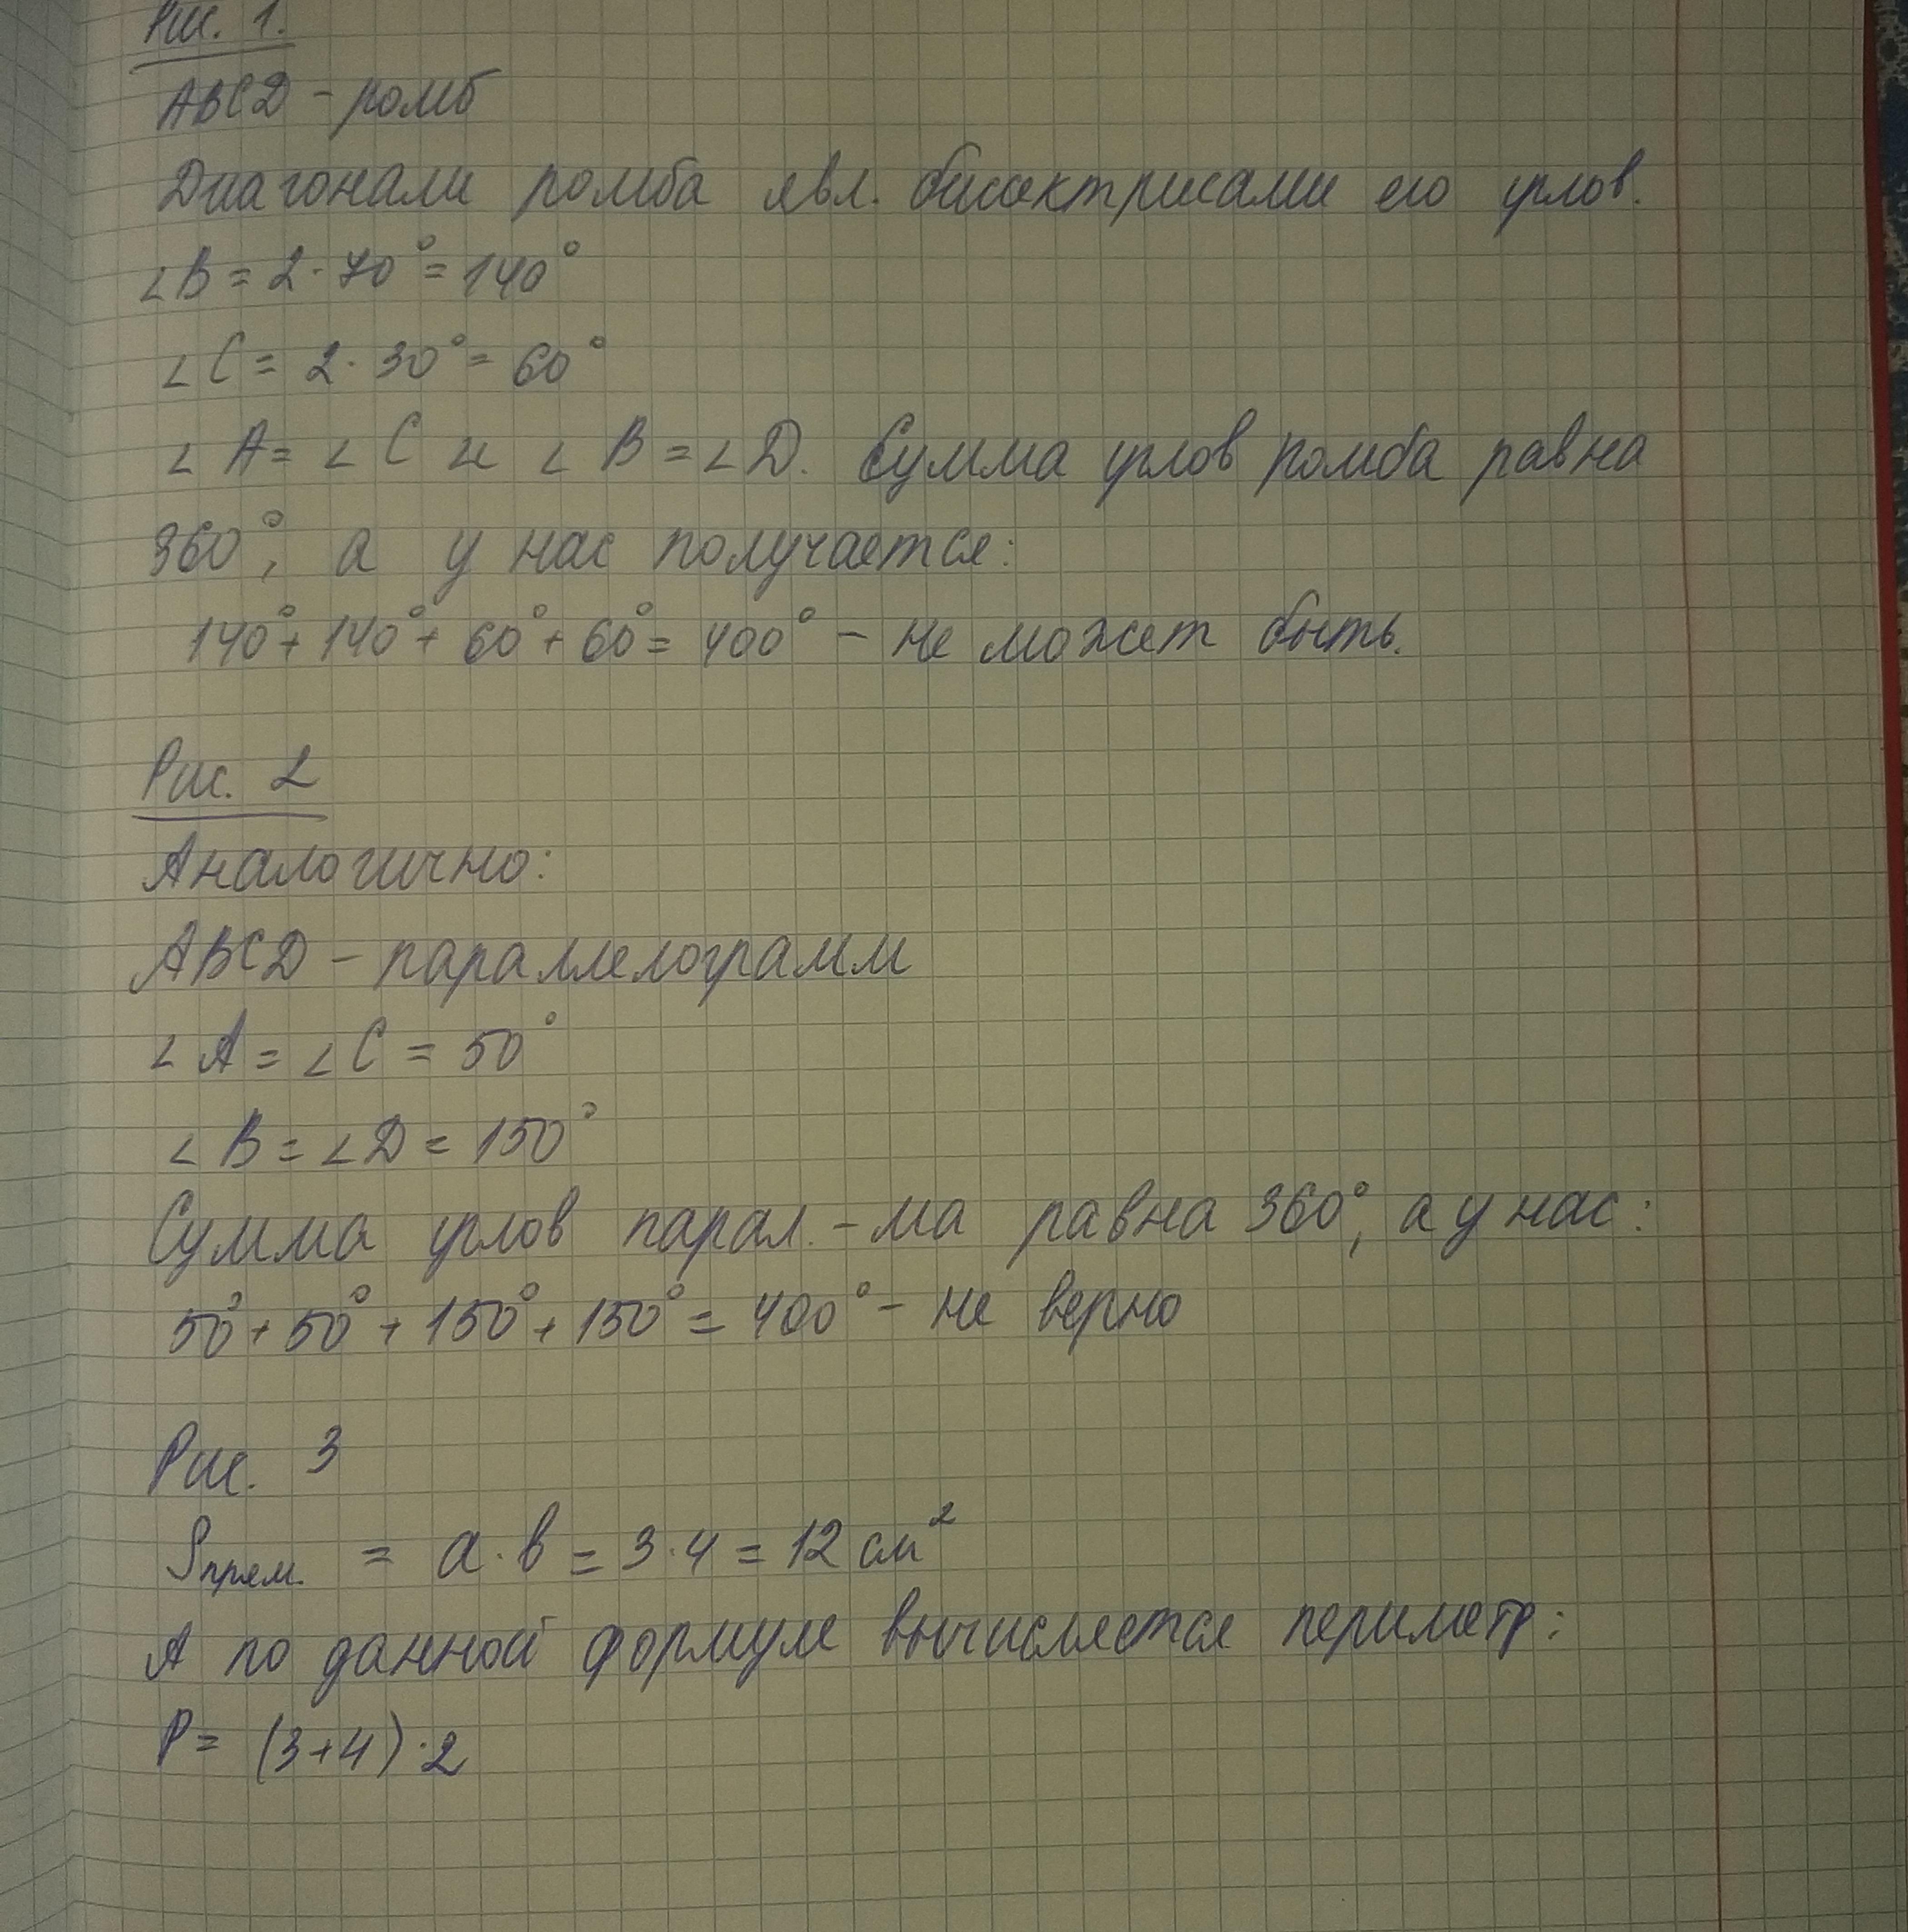 Рис. 1.
ABCD - ромб
Диагонали ромба явл. биссектрисами его углов.
∠B = 2·70° = 140°
∠C = 2·30° = 60°
∠A = ∠C и ∠B = ∠D. Сумма углов ромба равна
360°, а у нас получается:
140° + 140° + 60° + 60° = 400° - не может быть.
Рис. 2
Аналогично:
ABCD - параллелограмм
∠A = ∠C = 50°
∠B = ∠D = 150°
Сумма углов парал.-ма равна 360°, а у нас:
50° + 50° + 150° + 150° = 400° - не верно
Рис. 3
Sпрям. = a·b = 3·4 = 12 см²
А по данной формуле вычисляется периметр:
P = (3+4)·2